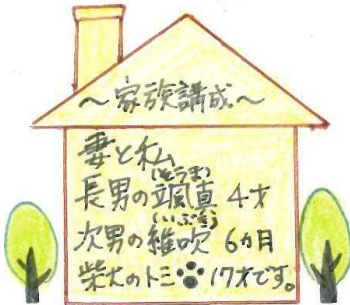 ～家族講成～
妻と私
長男の颯直(そうま) 4才
次男の維吹(いぶき) 6ヵ月
柴犬のトミ 17才です。